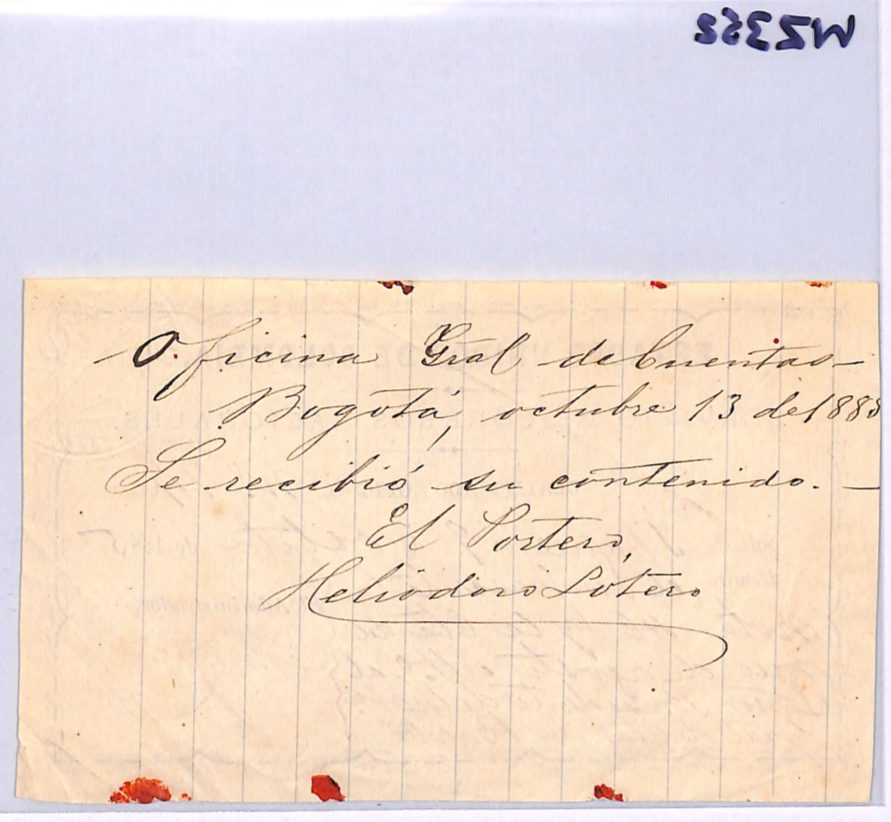 WZ352
Oficina Gral de Cuentas—
Bogotá, octubre 13 de 1885
Se recibió su contenido. —
El Portero,
Heliodoro Lotero